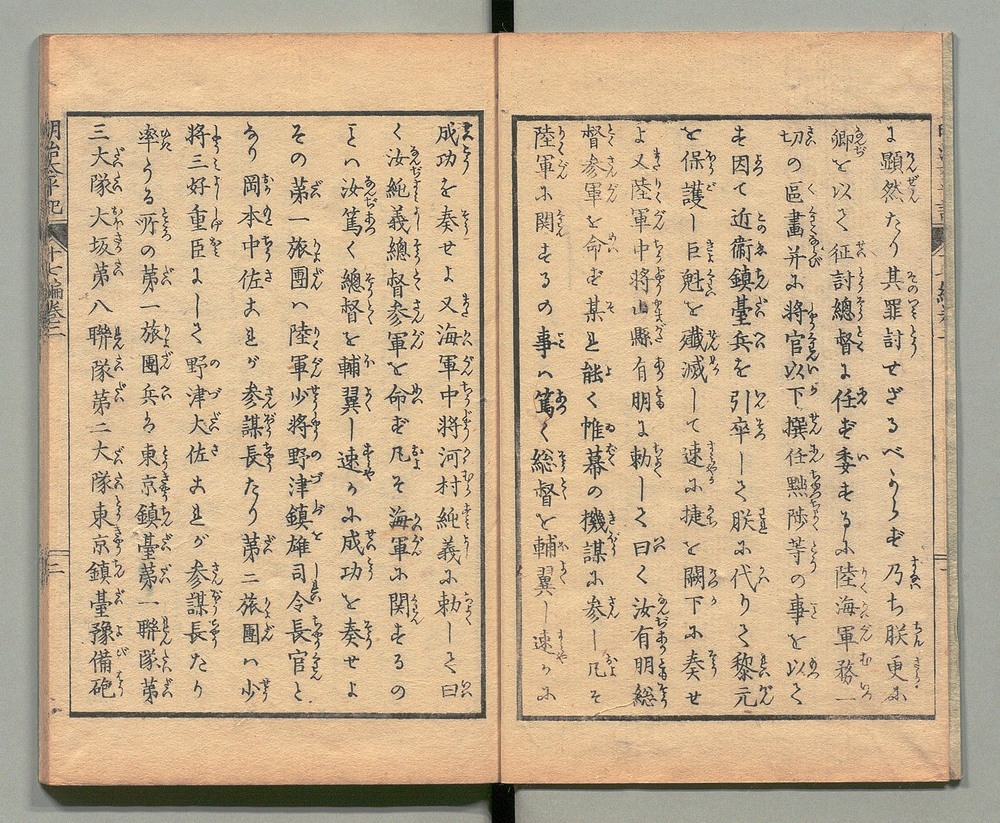 に顕然たり其罪討せざるべからず乃ち朕更に
卿を以て征討總督に任ず委するに陸海軍務一
切の區畫并に将官以下撰任黙陟等の事を以て
す因て近衞鎮臺兵を引率して朕に代りて黎元
を保護し巨魁を殲滅して速に捷を闕下に奏せ
よ又陸軍中将山縣有朋に勅して曰く汝有朋総
督参軍を命ず某it能く帷幕の機謀に参し凡そ
陸軍に関するの事ハ篤く総督を輔翼し速かに
成功を奏せよ又海軍中将河村純義に勅して曰
く汝純義總督参軍を命ず凡そ海軍に関するの
事ハ汝篤く總督を輔翼し速かに成功を奏せよ
その第一旅團ハ陸軍少将野津鎮雄司令長官と
なり岡本中佐これが参謀長たり第二旅團ハ少
将三好重臣にして野津大佐これが参謀長たり
率うる所の第一旅團兵は東京鎮臺第一聯隊第
三大隊大坂第八聯隊第二大隊東京鎮臺豫備砲
明治太平記
十七編巻二
二